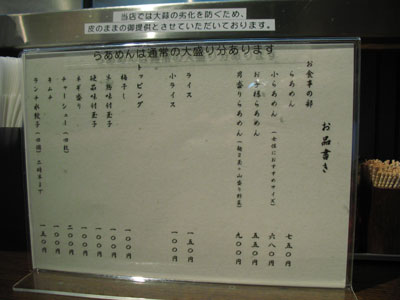 当店では大蒜の劣化を防ぐため、
皮のままの御提供とさせていただいております。
らあめんは通常の大盛り分あります
お品書き
お食事の部
らあめん 七五〇円
小らあめん (女性におすすめサイズ) 六八〇円
お子様らあめん 五五〇円
月盛りらあめん 九〇〇円
ライス 一五〇円
小ライス 一〇〇円
トッピング
梅干し 一〇〇円
半熟味付玉子 一〇〇円
硬茹味付玉子 一〇〇円
ネギ盛り 一〇〇円
チャーシュー 二〇〇円
キムチ 一〇〇円
ランチ水餃子 (四個) 二時半まで 一五〇円